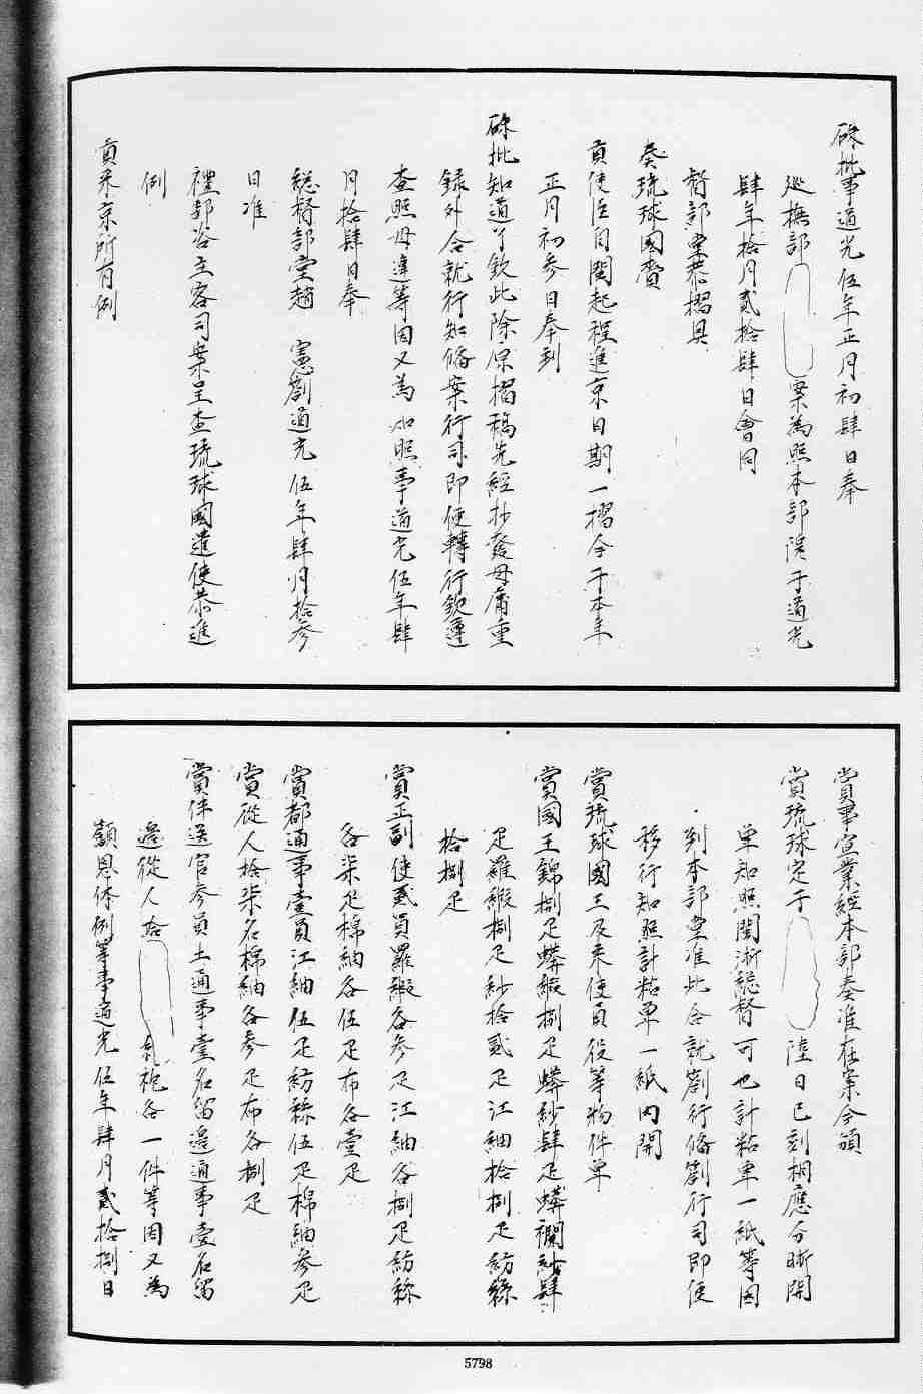 硃批事道光伍年正月初肆日奉
巡撫部
案為照本部院于道光
肆年拾月貳拾肆日會同
督部堂恭摺具
奏琉球國賫
貢使臣自閩起程進京日期一摺今于本年
正月初參日奉到
硃批知道了欽此除原摺稿先經抄發毋庸重
錄外合就行知備案行司即便轉行欽遵
查照毋違等因又為知照事道光伍年肆
月拾肆日奉
總督部堂趙 憲劄道光伍年肆月拾參
日准
禮部咨主客司案呈查琉球國遣使恭進
例
貢來京所有例
賞事宜業經本部奏准在案今頒
賞琉球定于
陸日巳刻相應分晰開
單知照閩浙總督可也計粘單一紙等因
到本部堂准此合就劄行備劄行司即便
移行知照計粘單一紙內開
賞琉球國王及來使員役等物件單
賞國王錦捌疋蟒緞捌疋蟒紗肆疋蟒襴紗肆
疋羅緞捌疋紗拾貳疋江紬拾捌疋紡絲
拾捌疋
賞正副使貳員羅緞各參疋江紬各捌疋紡絲
各柒疋棉紬各伍疋布各壹疋
賞都通事壹員江紬伍疋紡絲伍疋棉紬參疋
賞從人拾柒名棉紬各參疋布各捌疋
賞伴送官參員土通事壹名留邊通事壹名留
邊從人拾
袍各一件等因又為
額恩体例等事道光伍年肆月貳拾捌日
5798